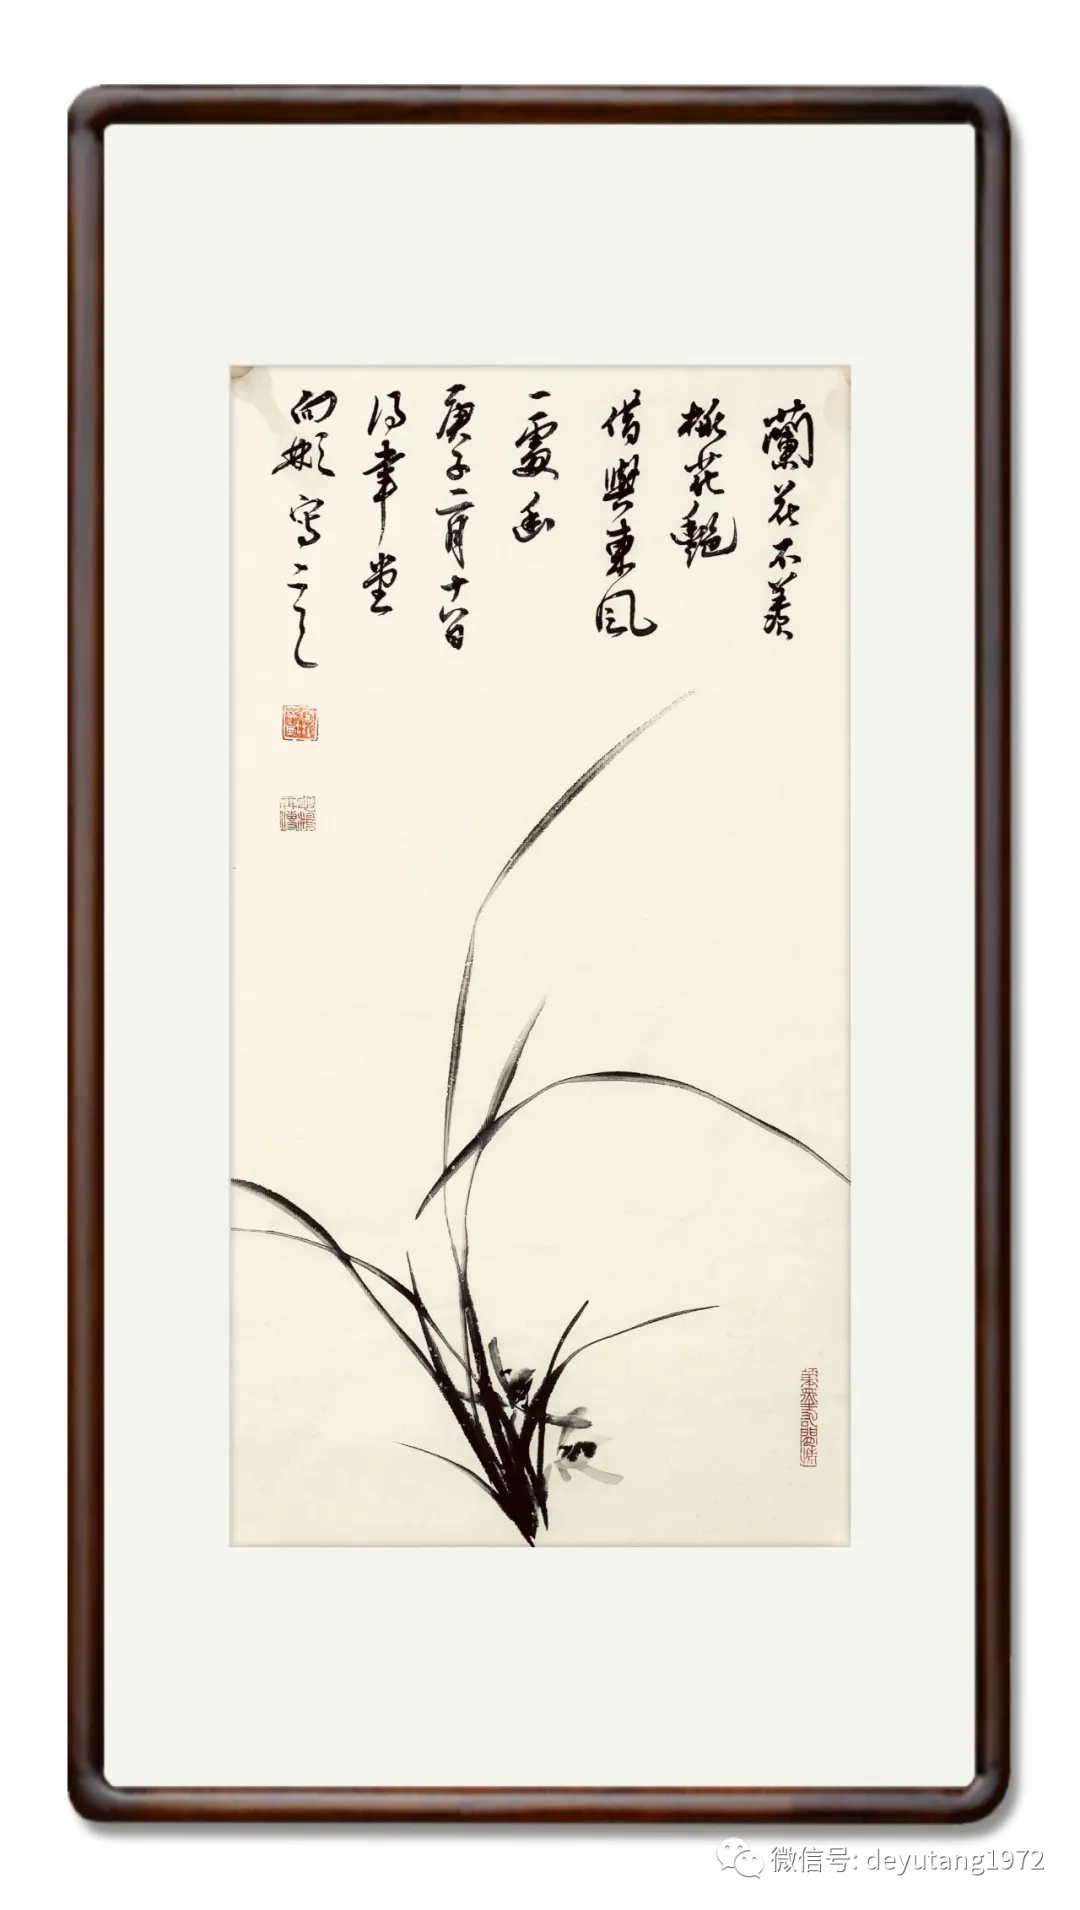 蘭花不羨
桃花艷
借與東風
一
庚子二月十八日
得聿堂
向寫之
微信号: deyutang1972